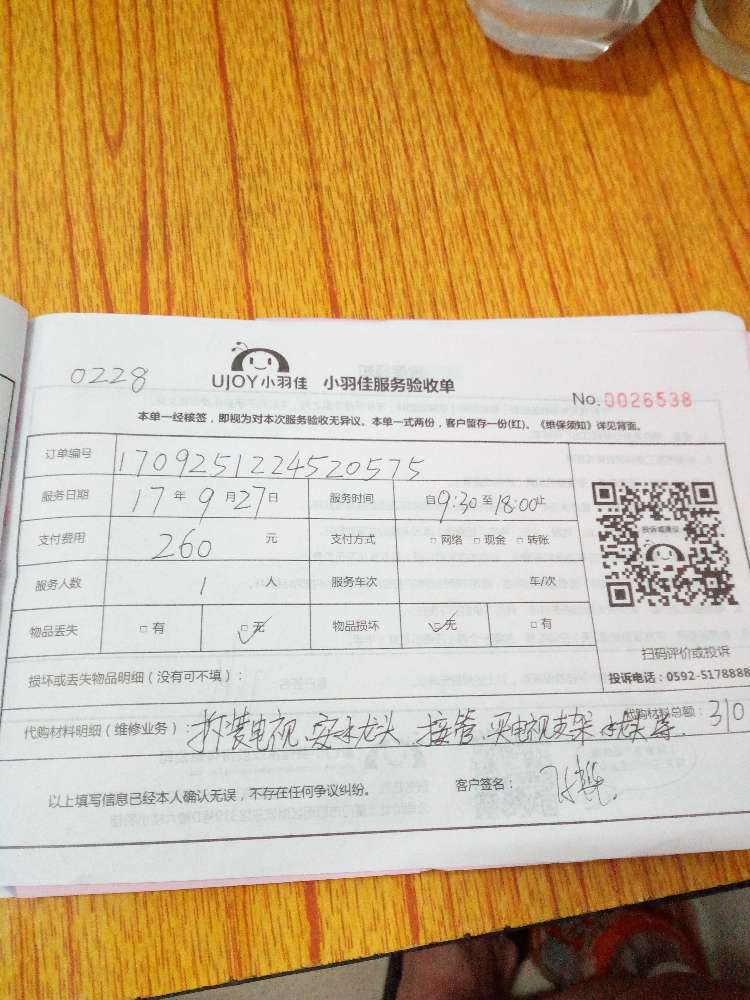 0228
UJOY小羽佳 小羽佳服务验收单
No. 0026538
本单一经核签，即视为对本次服务验收无异议。本单一式两份，客户留存一份(红)。《维保须知》详见背面。
订单编号 1709251224520575
服务日期 17年9月27日 服务时间 自9:30至18:00止
支付费用 260 元 支付方式 □网络 □现金 □转账
服务人数 1 人 服务车次 车/次
物品丢失 □有 ☑无 物品损坏 ☑无 □有
投诉或建议
扫码评价或投诉
投诉电话：0592-5178888
损坏或丢失物品明细（没有可不填）：
代购材料明细（维修业务）：拆装电视、安水龙头、接管、买电视支架 代购材料总额：310
以上填写信息已经本人确认无误，不存在任何争议纠纷。 客户签名：